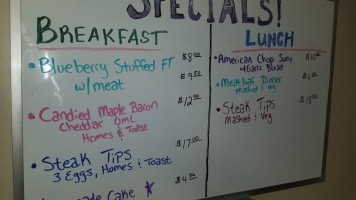 SPECIALS!
BREAKFAST
• Blueberry Stuffed FT $8
w/ meat $9
• Candied Maple Bacon $12
Cheddar Oml
Homes & Toast
• Steak Tips $17
3 Eggs, Homes & Toast
Cake $4
LUNCH
• American Chop Suey
w/ Garlic Bread
• Meatloaf Dinner
Mashed & Veg
• Steak Tips
Mashed & Veg